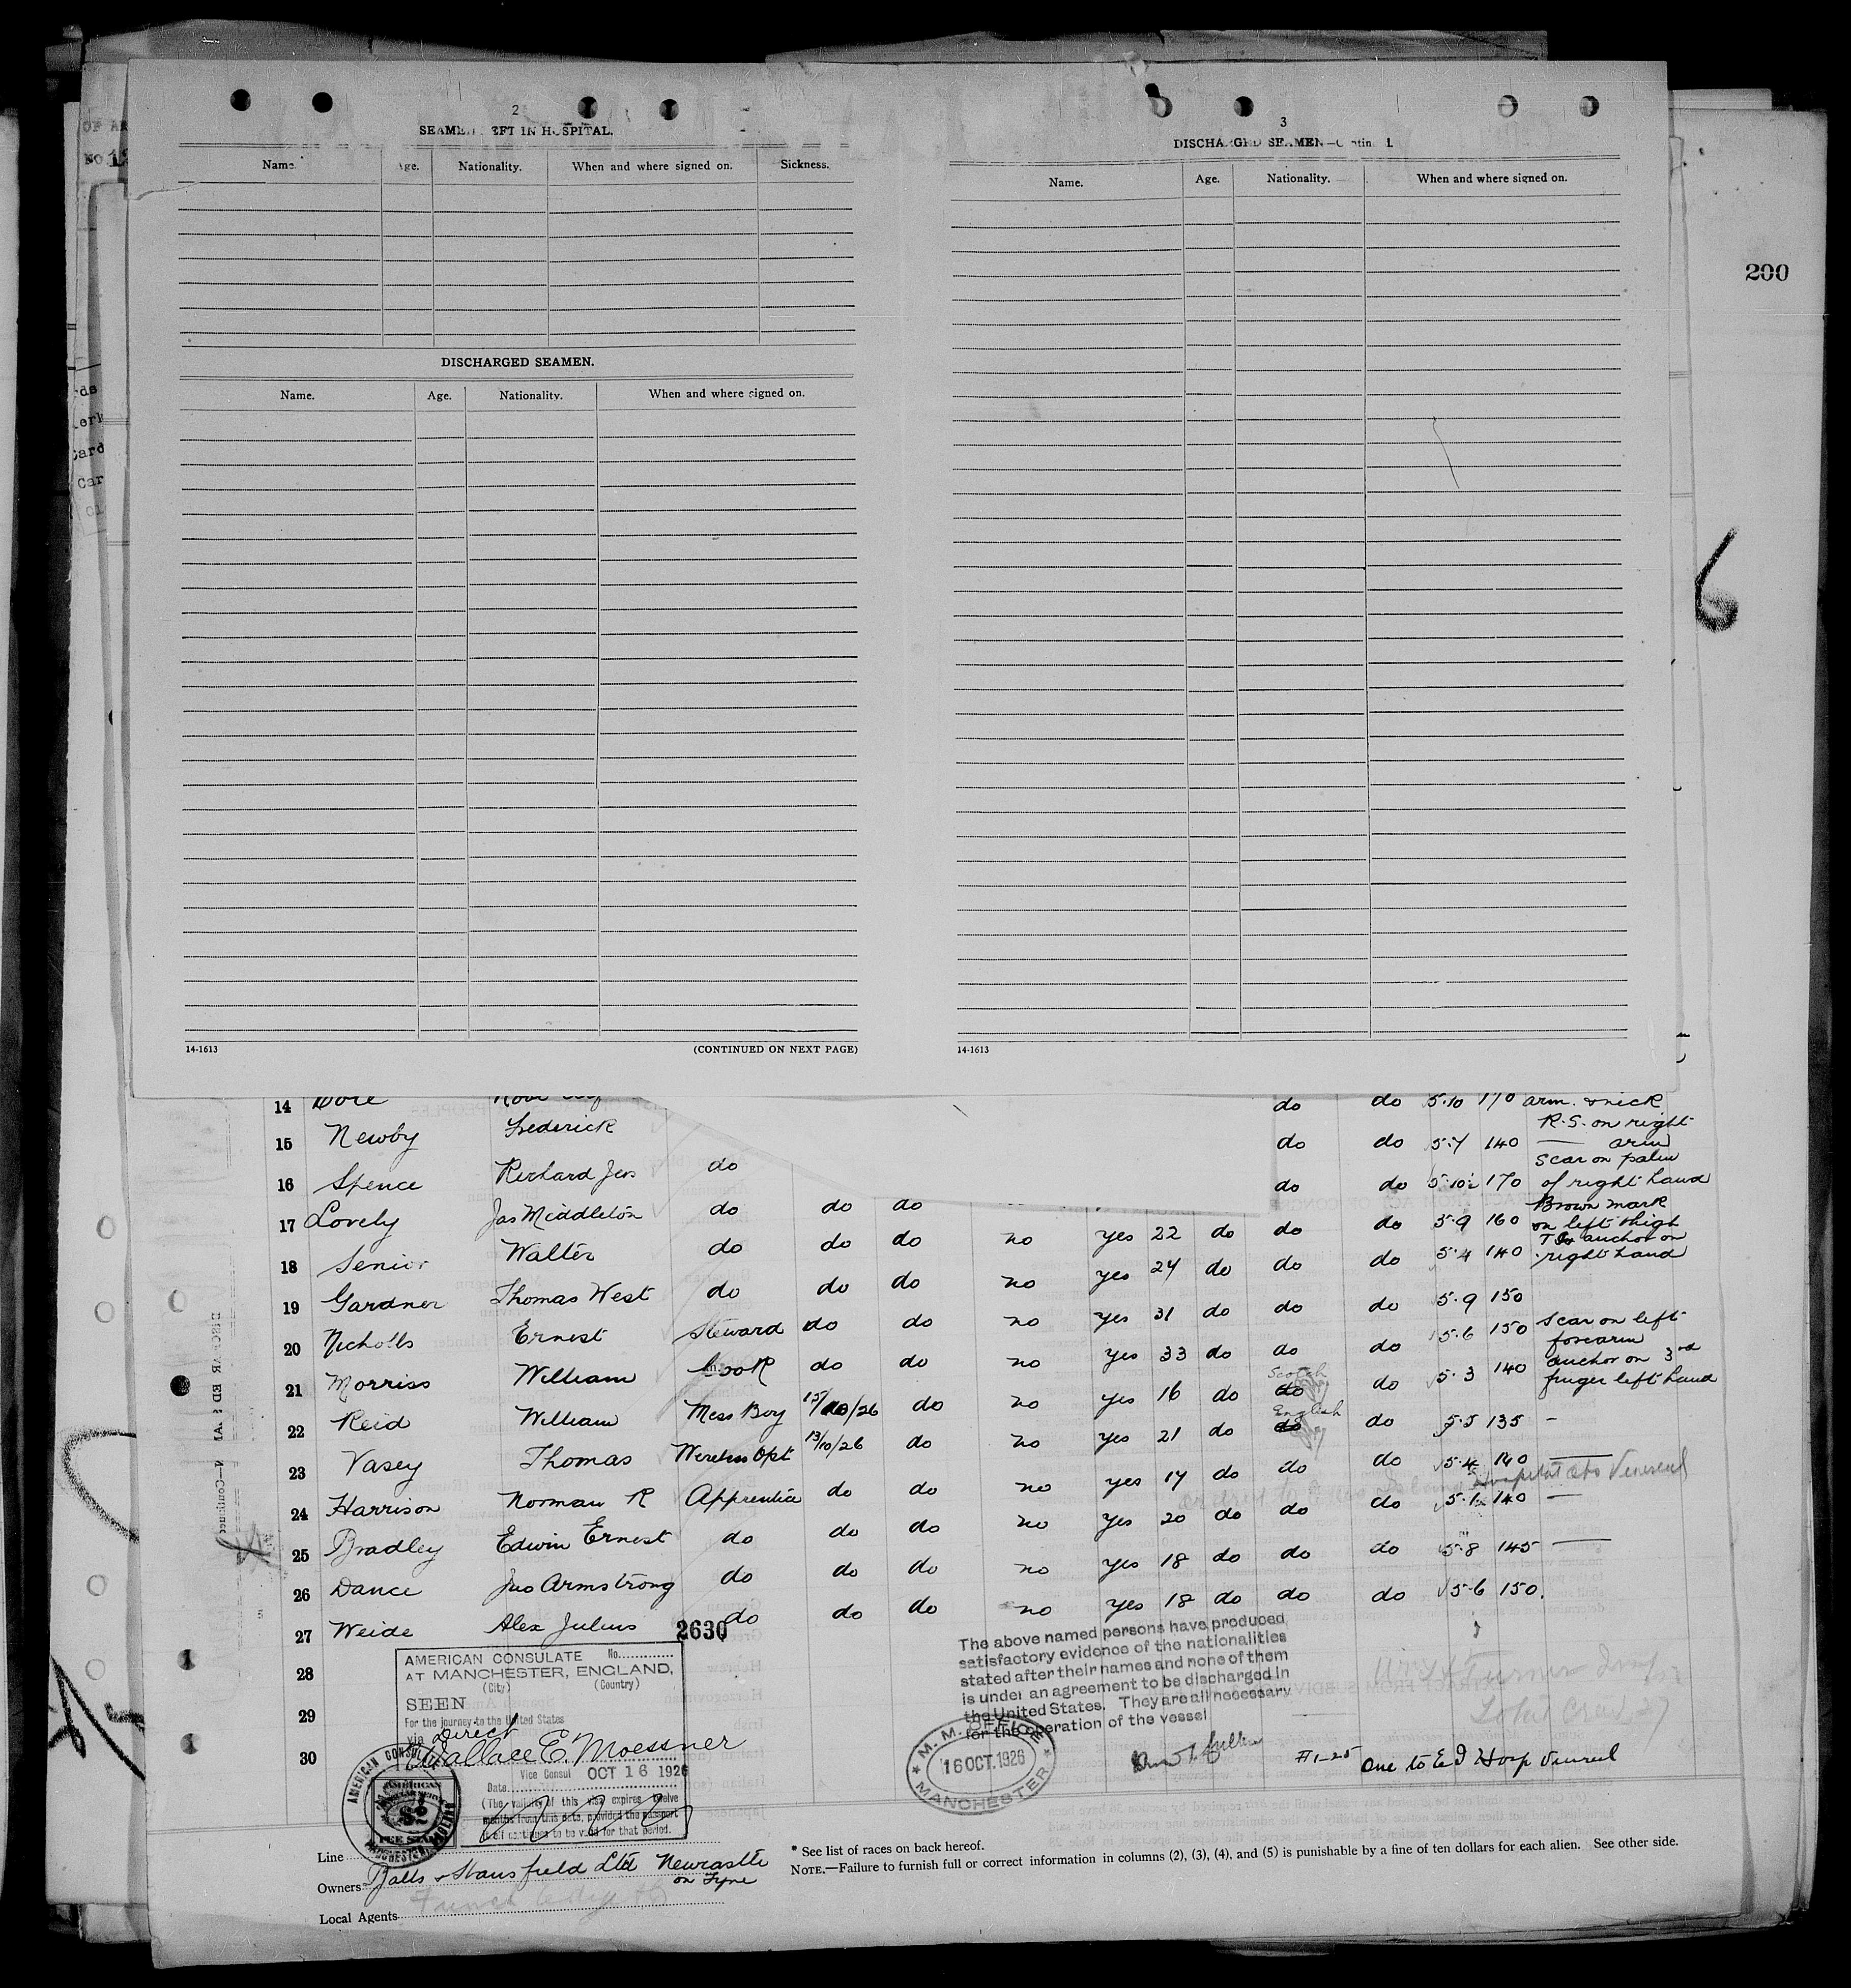 2
SEAMEN LEFT IN HOSPITAL.
Name. Age. Nationality. When and where signed on. Sickness.
DISCHARGED SEAMEN.
Name. Age. Nationality. When and where signed on.
14-1613 (CONTINUED ON NEXT PAGE)
3
DISCHARGED SEAMEN—Contin
Name. Age. Nationality. When and where signed on.
14-1613
200
6
14 Dore do do 5·10 170 arm. & neck
15 Newby Frederick do do 5·7 140 R.S. on right arm
16 Spence Richard Jas do do do 5·10½ 170 Scar on palm of right hand
17 Lovely Jas Middleton do do do no yes 22 do do do 5·9 160 Brown mark on left thigh
18 Senior Walter do do do no yes 24 do do do 5·4 140 anchor on right hand
19 Gardner Thomas West do do do no yes 31 do do do 5·9 150
20 Nicholls Ernest Steward do do no yes 33 do do do 5·6 150 Scar on left forearm
21 Morriss William Cook do do no yes 16 do Scotch do do 5·3 140 anchor on 3rd finger left hand
22 Reid William Mess Boy 15/10/26 do no yes 21 do English do do 5·5 135 —
23 Vasey Thomas Wireless Opt 13/10/26 do no yes 17 do do do 5·4 140 —
24 Harrison Norman R Apprentice do do no yes 20 do do do 5·1½ 140 —
25 Bradley Edwin Ernest do do do no yes 18 do do do 5·8 145 —
26 Dance Jno Armstrong do do do no yes 18 do do do 5·6 150.
27 Weide Alex Julius do do do
28
29
30
2630
AMERICAN CONSULATE No.
AT MANCHESTER, ENGLAND,
(City) (Country)
SEEN
For the journey to the United States
via Direct
Wallace E. Moessner
Vice Consul OCT 16 1926
Date
(The validity of this visa expires twelve
months from this date, provided the passport
shall continue to be valid for that period.
AMERICAN CONSULATE
AMERICAN
$2
FEE STAMP
MANCHESTER, ENGLAND
The above named persons have produced
satisfactory evidence of the nationalities
stated after their names and none of them
is under an agreement to be discharged in
the United States. They are all necessary
for the operation of the vessel
M. M. OFFICE
16 OCT. 1926
MANCHESTER
#1-25 One to E I Hosp Venereal
Total Crew 27
Line
Owners Balls & Stansfield Ltd Newcastle on Tyne
Local Agents
* See list of races on back hereof.
NOTE.—Failure to furnish full or correct information in columns (2), (3), (4), and (5) is punishable by a fine of ten dollars for each alien. See other side.